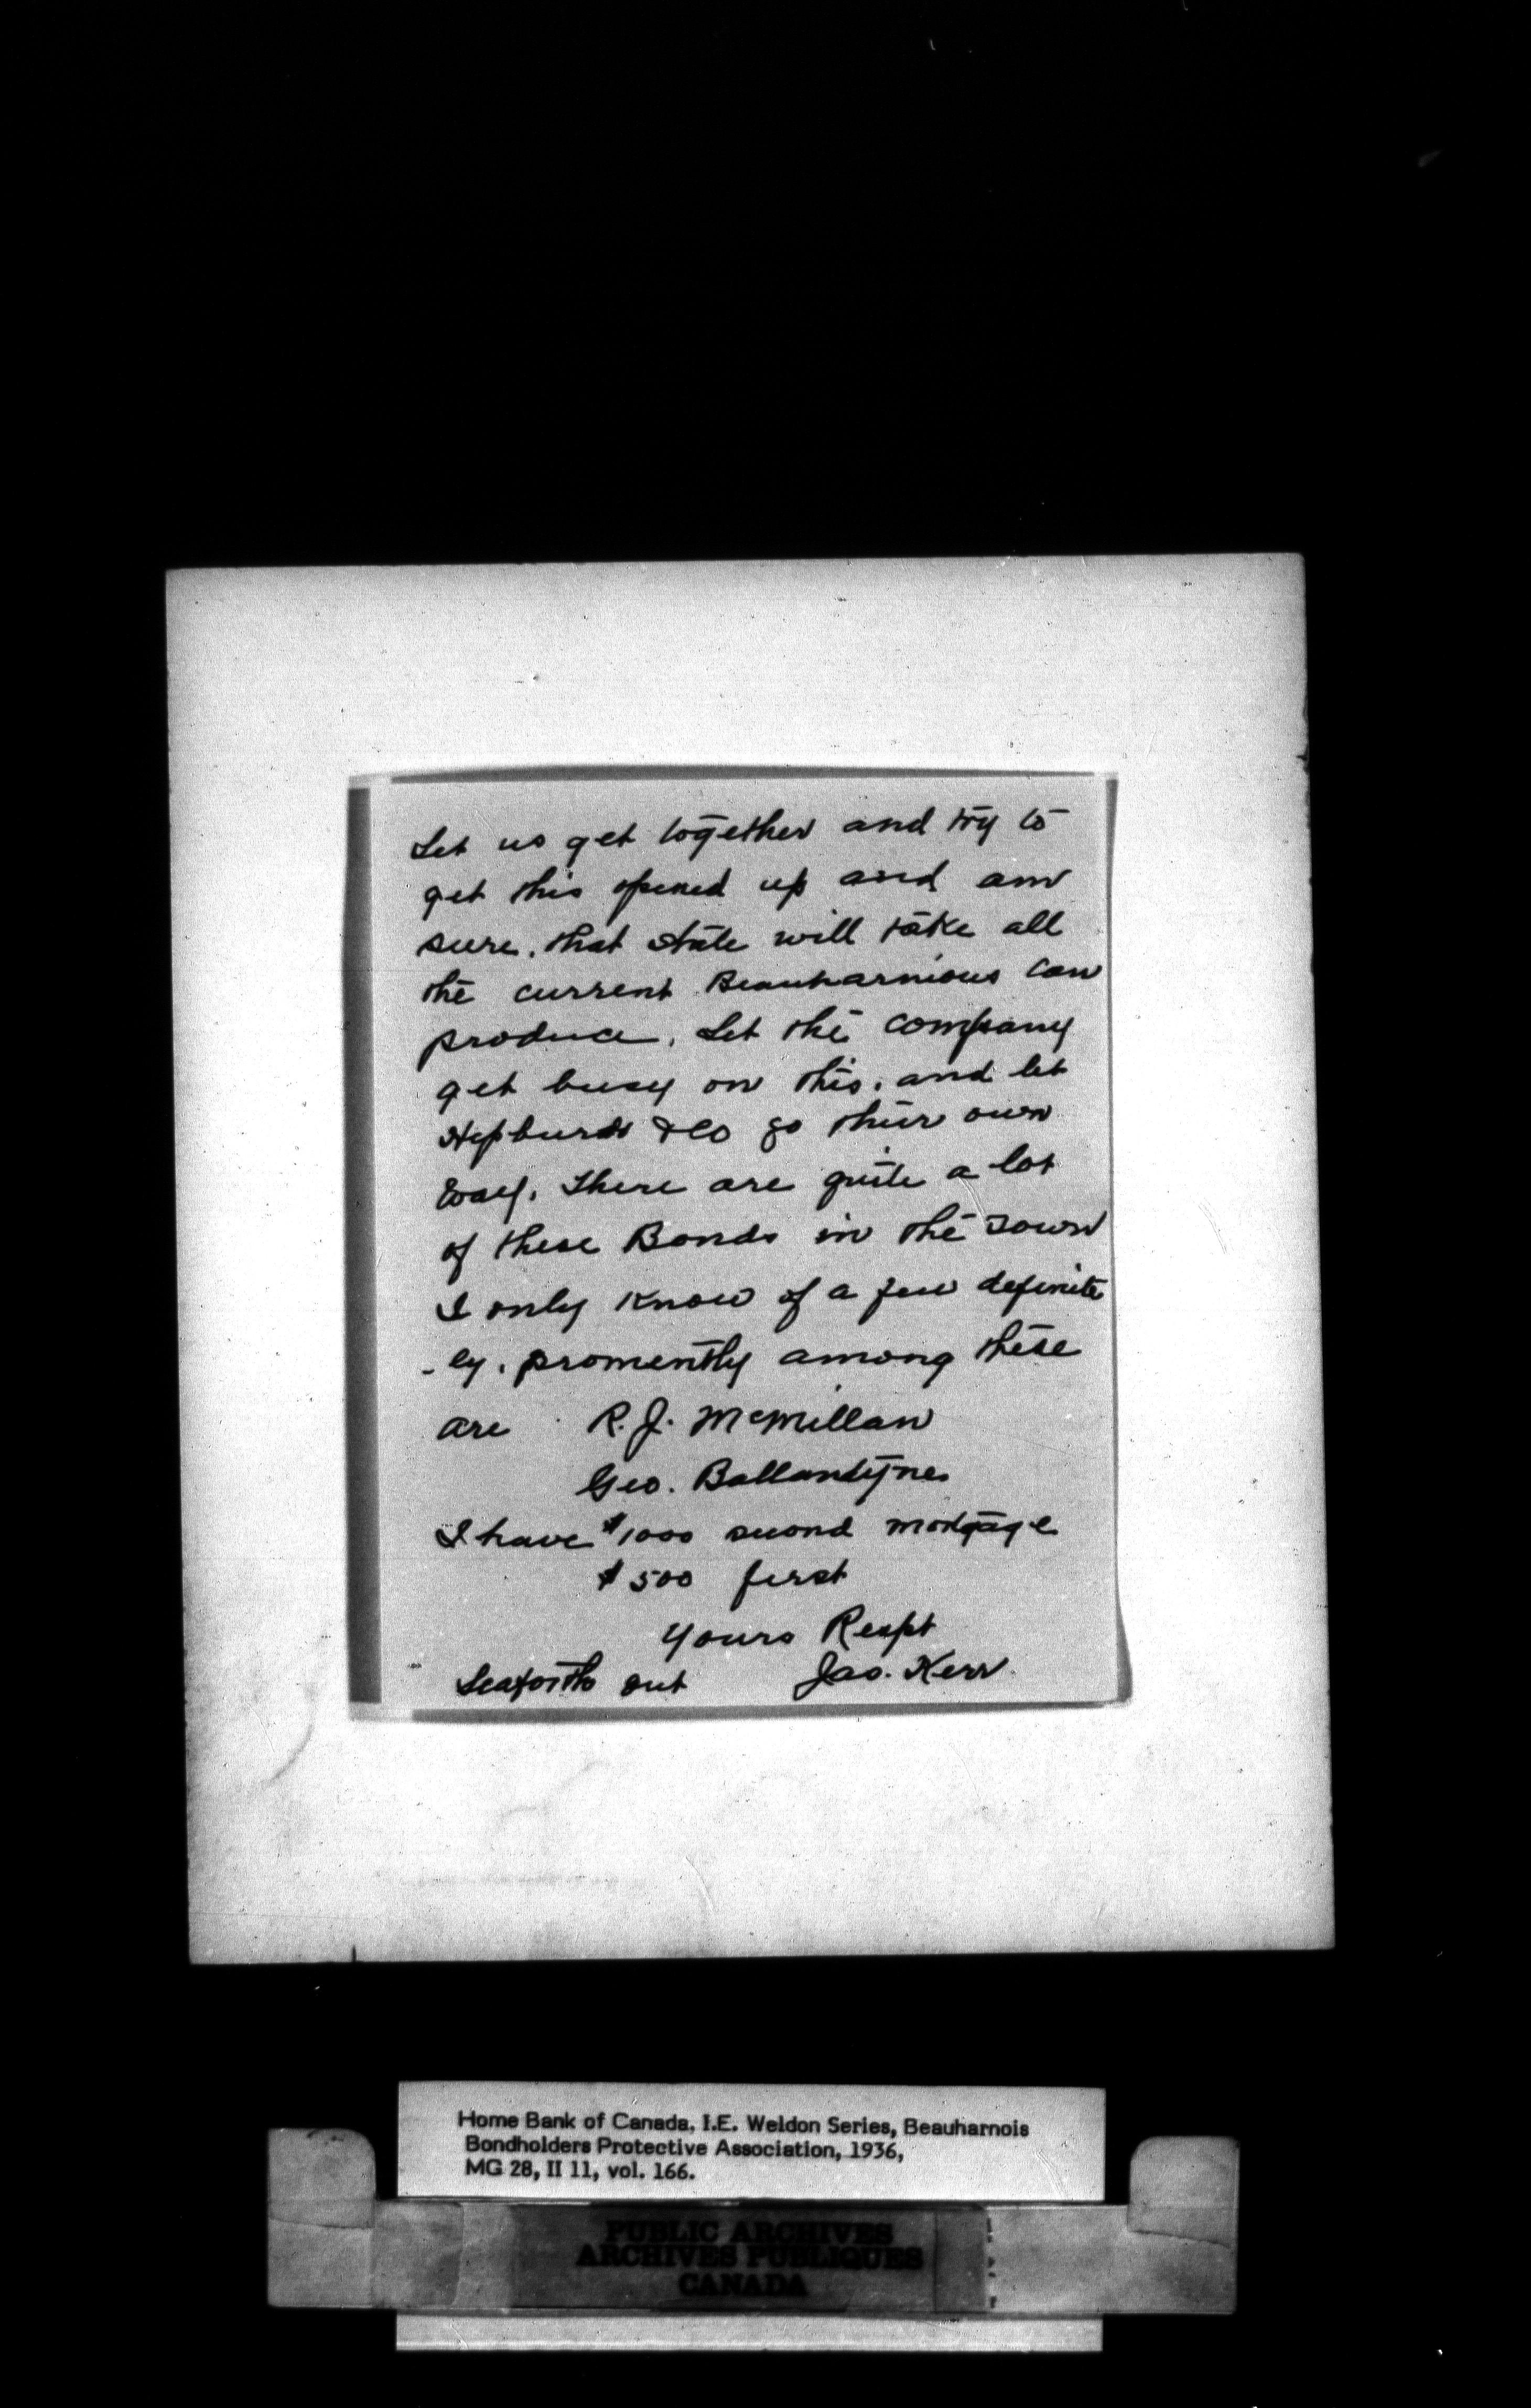 Let us get together and try to
get this opened up and am
sure, that state will take all
the current Beauharnious can
produce. Let the company
get busy on this, and let
Hepburn & Co go their own
way. There are quite a lot
of these Bonds in the Town
I only know of a few definite
- ly, promently among these
are R. J. McMillan
Geo. Ballantyne
I have $1000 second mortgage
$500 first
Yours Respt
Seaforth Ont Jas. Kerr
Home Bank of Canada, I.E. Weldon Series, Beauharnois
Bondholders Protective Association, 1936,
MG 28, II 11, vol. 166.
PUBLIC ARCHIVES
ARCHIVES PUBLIQUES
CANADA